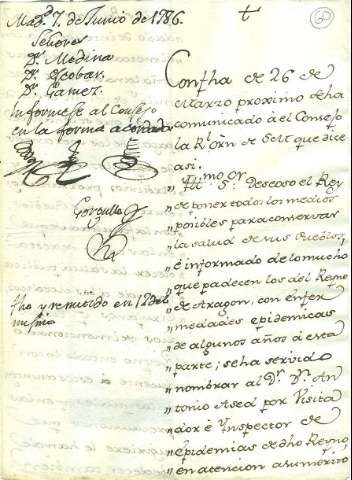 Mad.d 7. de Junio de 1786.
Señores
D.r Medina
D.r Escobar
D.r Gamez
informese al Consejo
en la forma acordada
Gorgullo
fho y remitido en 12 del
mismo
Con fha de 26 de
Marzo proximo se ha
comunicado à el Consejo
la Rl orñ de S. M. que dice
asi.
„ Ill.mo S.or Deseoso el Rey
„ de poner todos los medios
„ posibles para conservar
„ la salud de sus Pueblos,
„ é informado de lo mucho
„ que padecen los del Reyno
„ de Aragon, con enfer
„ medades epidemicas
„ de algunos años à esta
„ parte; se ha servido
„ nombrar al D.r D.n An
„ tonio Ased por Visita
„ dor é Inspector de
„ epidemias de dho Reyno,
„ en atencion à su merito,